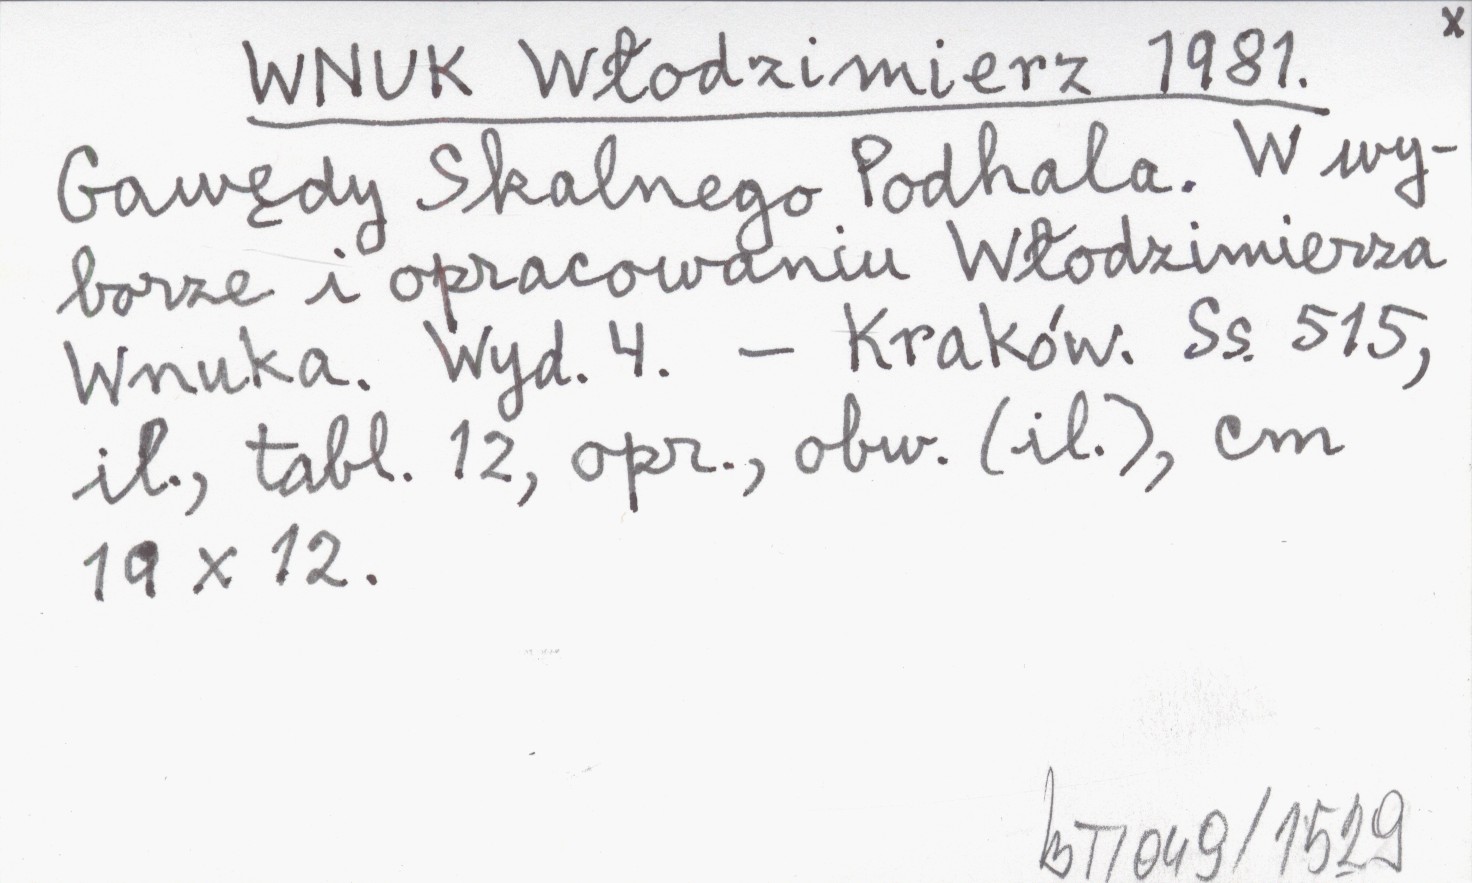 x
WNUK Włodzimierz 1981.
Gawędy Skalnego Podhala. W wy-
borze i opracowaniu Włodzimierza
Wnuka. Wyd. 4. – Kraków. Ss. 515,
il., tabl. 12, opr., obw. (il.), cm
19 x 12.
049/1529